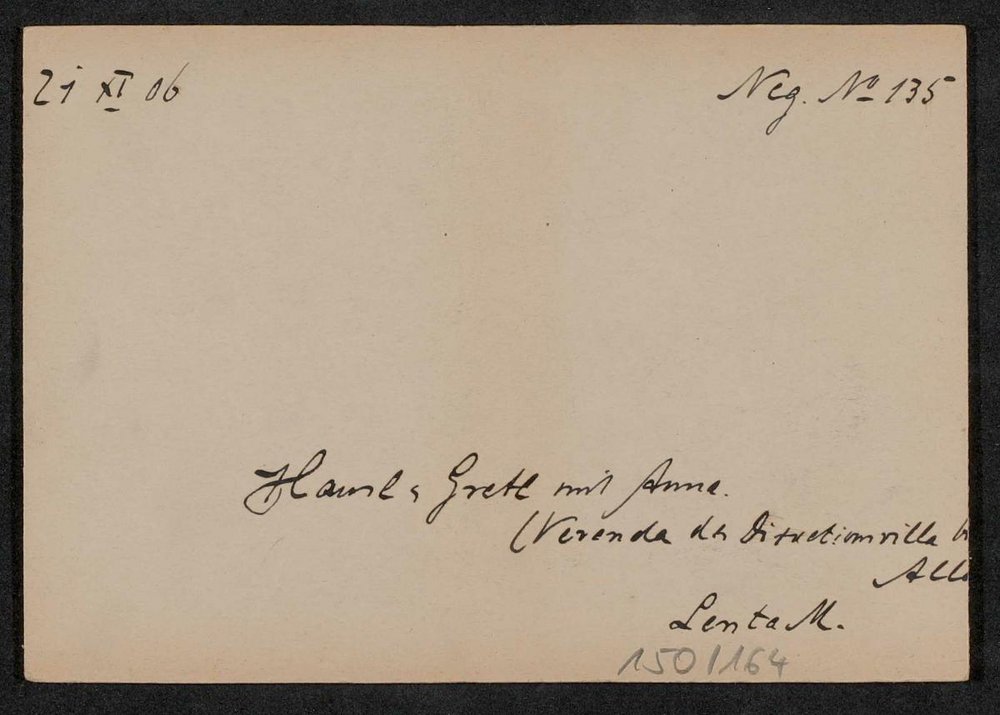 21 XI 06
Neg. No 135
Hansl & Gretl mit Anna.
(Verenda der Directionvilla
Lenta M.
150/164